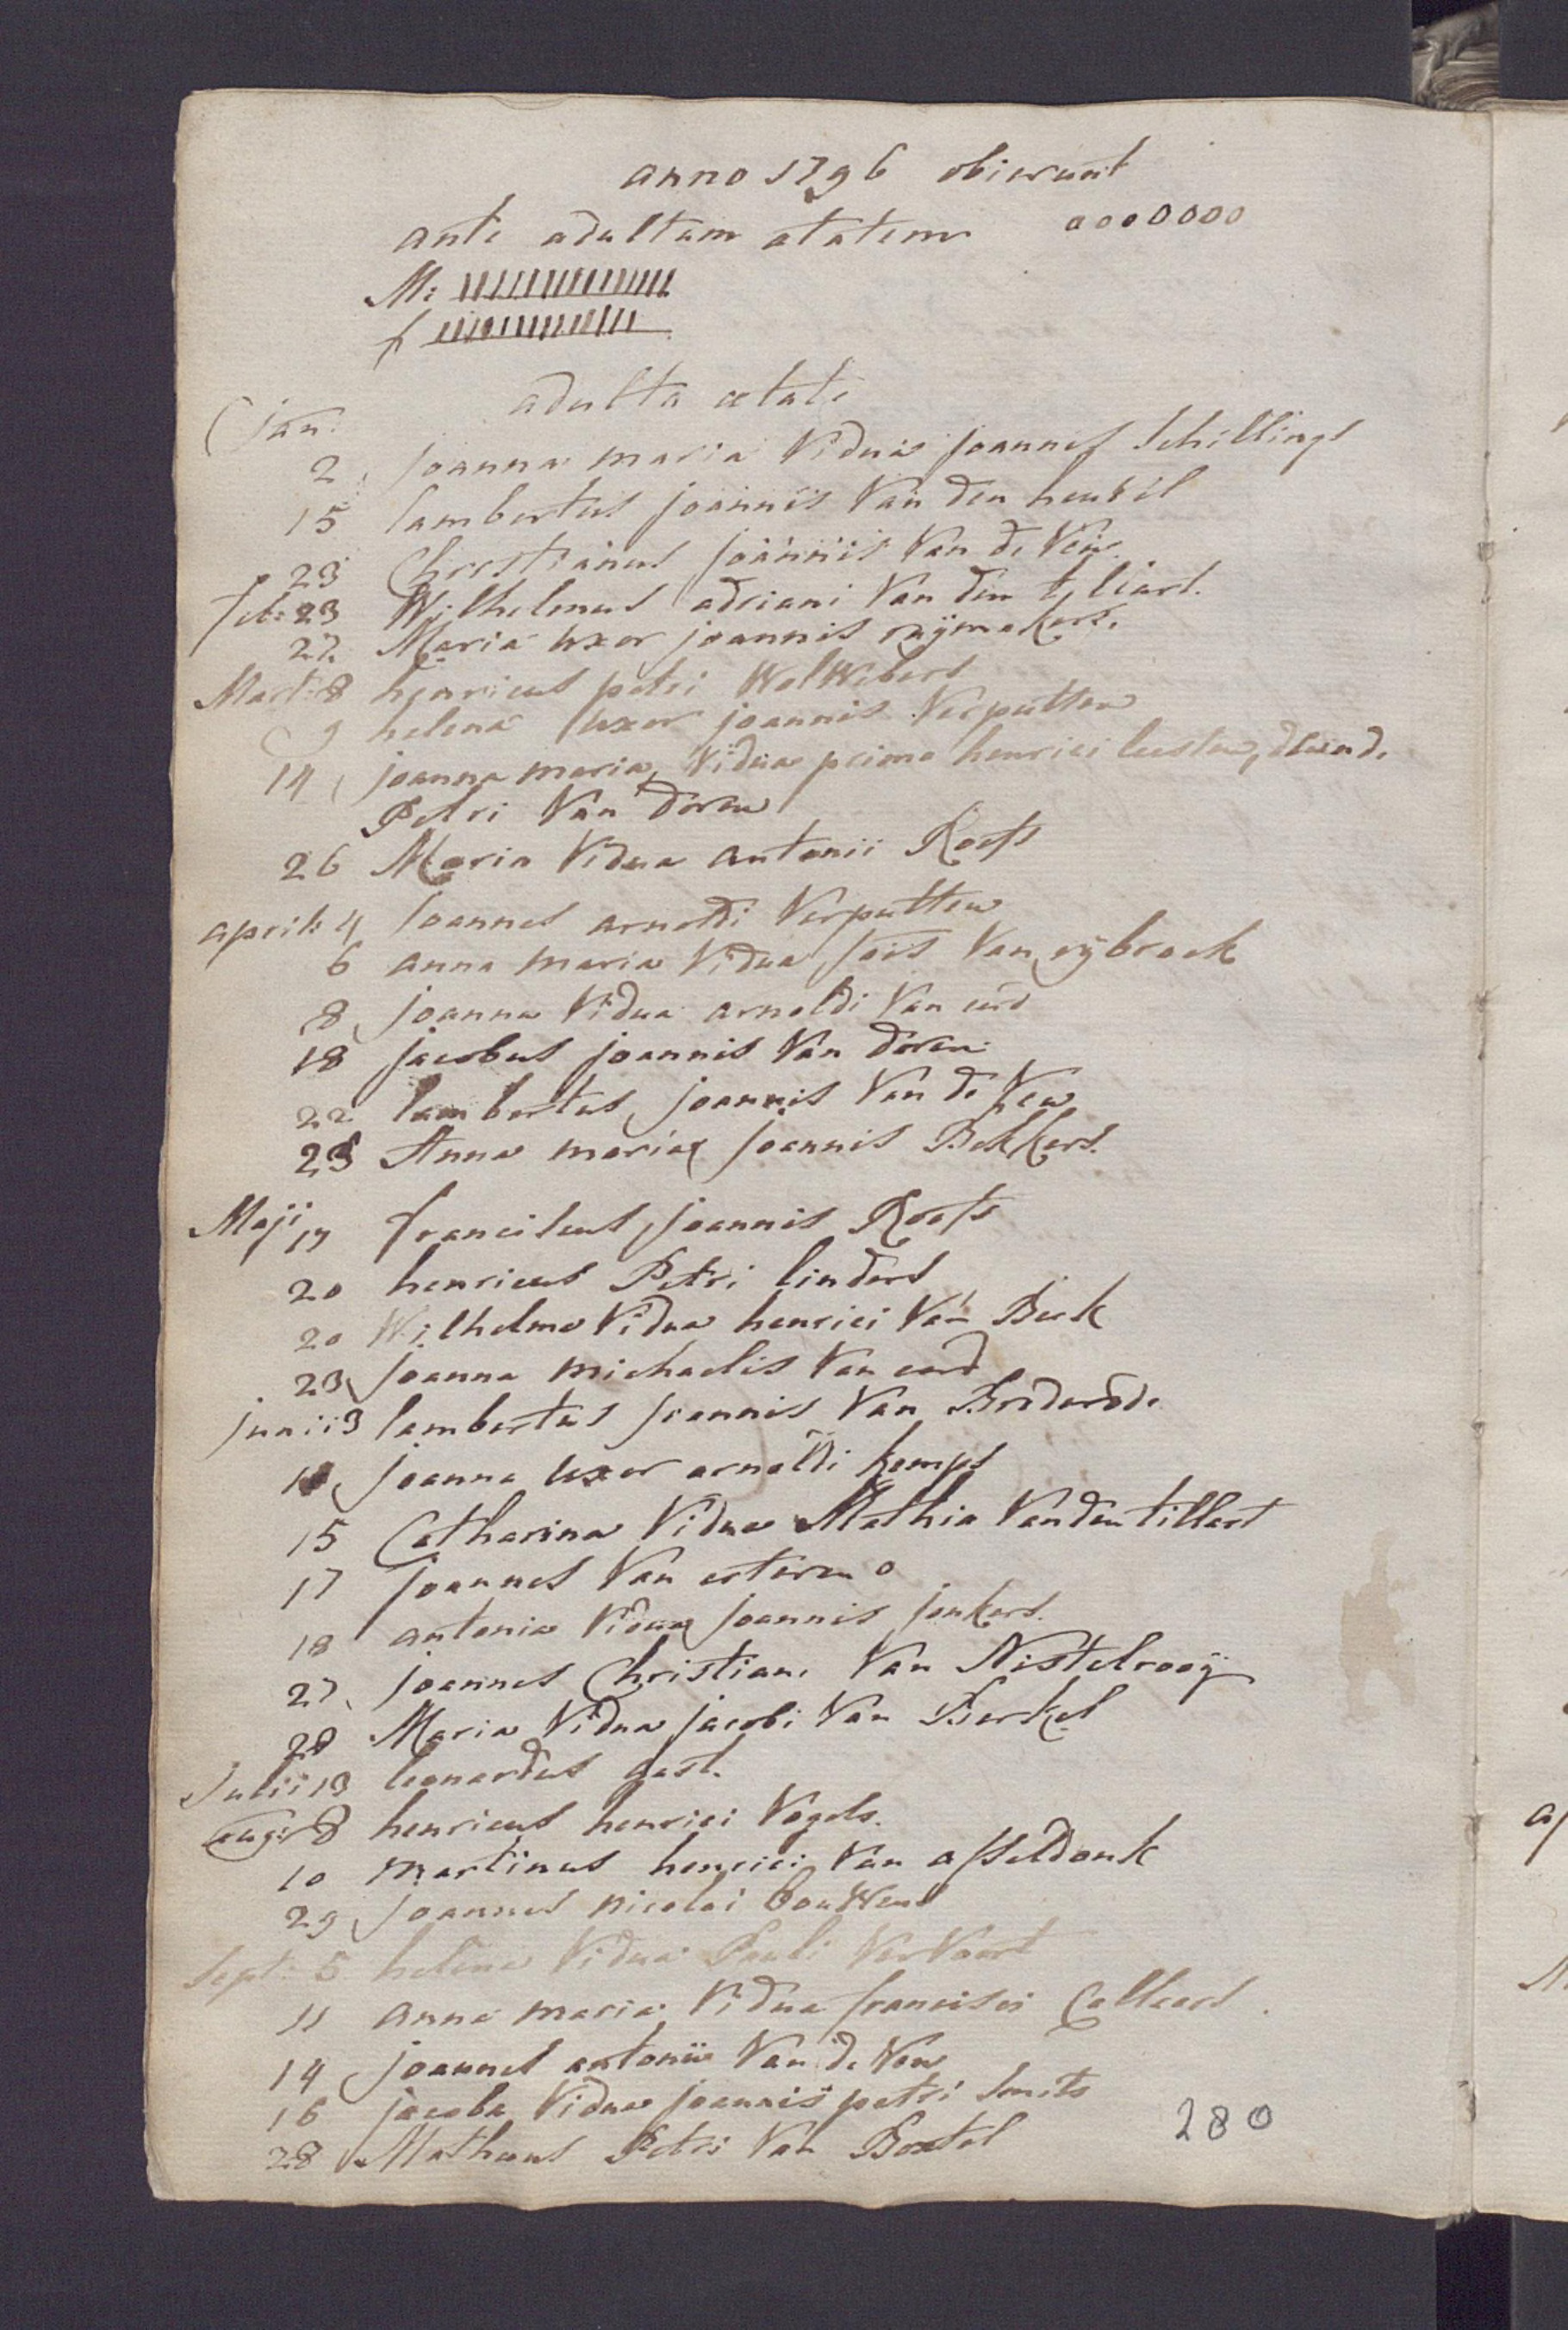 anno 1796 obierunt
ante adultam etatem 0000000
M: ||||||||||||||||
f |||||||||||||||
adulta ætate
jan:
2 joanna maria vidua joannes Schillings
15 lambertus joannis Van den heuvel
23 Christianus joannis Van de Ven
feb: 23 Wilhelmus adriani Van den tiliart.
27 Maria uxor joannis raijmakers.
Mart: 8 henricus petri WelWebers
9 helena uxor joannis Verputten
14 joanna maria, vidua primo henrici
Petri Van Doren
26 Maria Vidua antonii Roefs
april: 4 Joannes arnoldi Verputten
6 anna maria Vidua jois Van eijbroek
8 joanna Vidua arnoldi Van eerd
18 jacobus joannis Van Doren
22 lambertus joannis Van de Ven
23 Anna maria joannis Bekkers.
Maji 17 franciscus joannis Roefs
20 henricus Petri linders
20 Wilhelma Vidua henrici Van Beek
23 joanna michaelis Van eerd
junii 3 lambertus joannis Van Brederode
joanna uxor arnoldi kemps
15 Catharina Vidua Mathia Van den tillart
17 joannes Van esteren o
18 antonia Vidua joannis jonkers.
27 joannes Christiani Van Nistelrooij
28 Maria Vidua jacobi Van Berkel
Julii 13 leonardus gast.
aug: 8 henricus henrici Vogels.
10 martinus henrici Van asseldonk
29 joannes nicolai bouWens
Sept: 5 helena Vidua Pauli VerVoort
11 anna maria Vidua francisci Collaerd.
14 joannes antonii Van de Ven
16 jacoba Vidua joannis petri Smits
28 Matheus Petri Van Boxtel
280